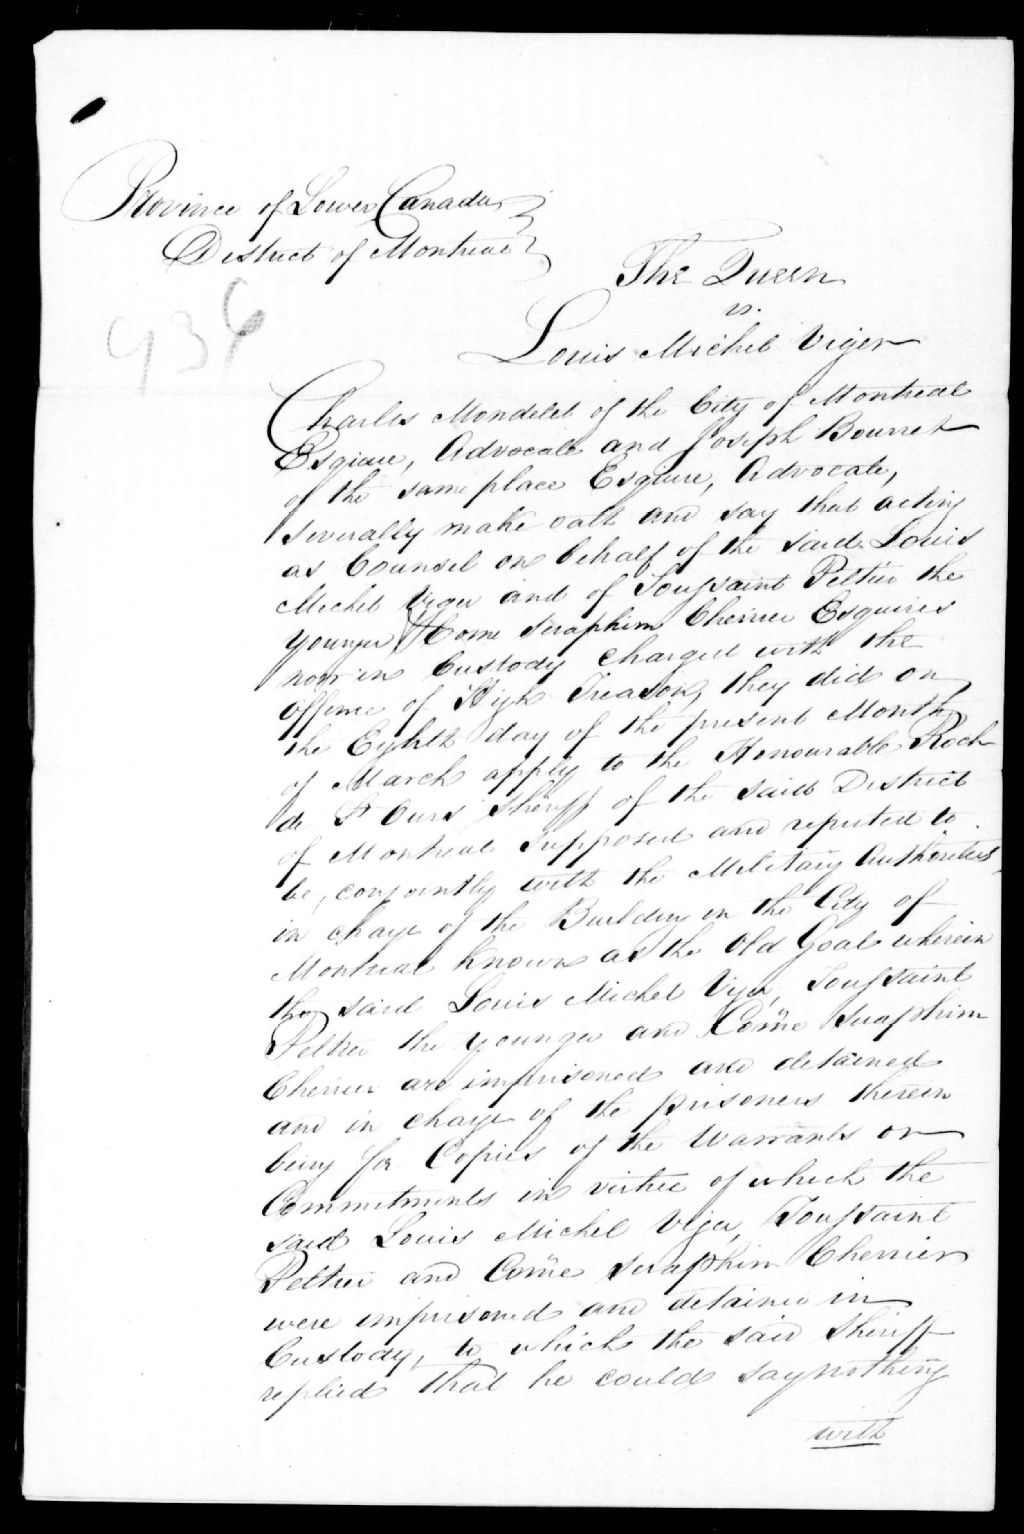 Province of Lower Canada
District of Montreal
The Queen
vs.
936
Louis Michel Viger
Charles Mondelet of the City of Montreal
Esquire, Advocate and Joseph Bourret
of the same place Esquire, Advocate,
severally make oath and say that acting
as Counsel on behalf of the said Louis
Michel Viger and of Toussaint Peltier the
younger Come Seraphim Cherrier Esquires
now in Custody charged with the
offence of High Treason, they did on
the Eighth day of the present Month
of March apply to the Honourable Roch
de St Ours Sheriff of the said District
of Montreal supposed and reputed to
be, conjointly with the Military Authorities,
in charge of the Building in the City of
Montreal known as the Old Goal wherein
the said Louis Michel Viger, Toussaint
Peltier the younger and Côme Seraphim
Cherrier are imprisoned and detained
and in charge of the prisoners therein
being for Copies of the Warrants or
Commitments in virtue of which the
said Louis Michel Viger, Toussaint
Peltier and Côme Seraphim Cherrier
were imprisoned and detained in
Custody, to which the said Sheriff
replied that he could say nothing
with